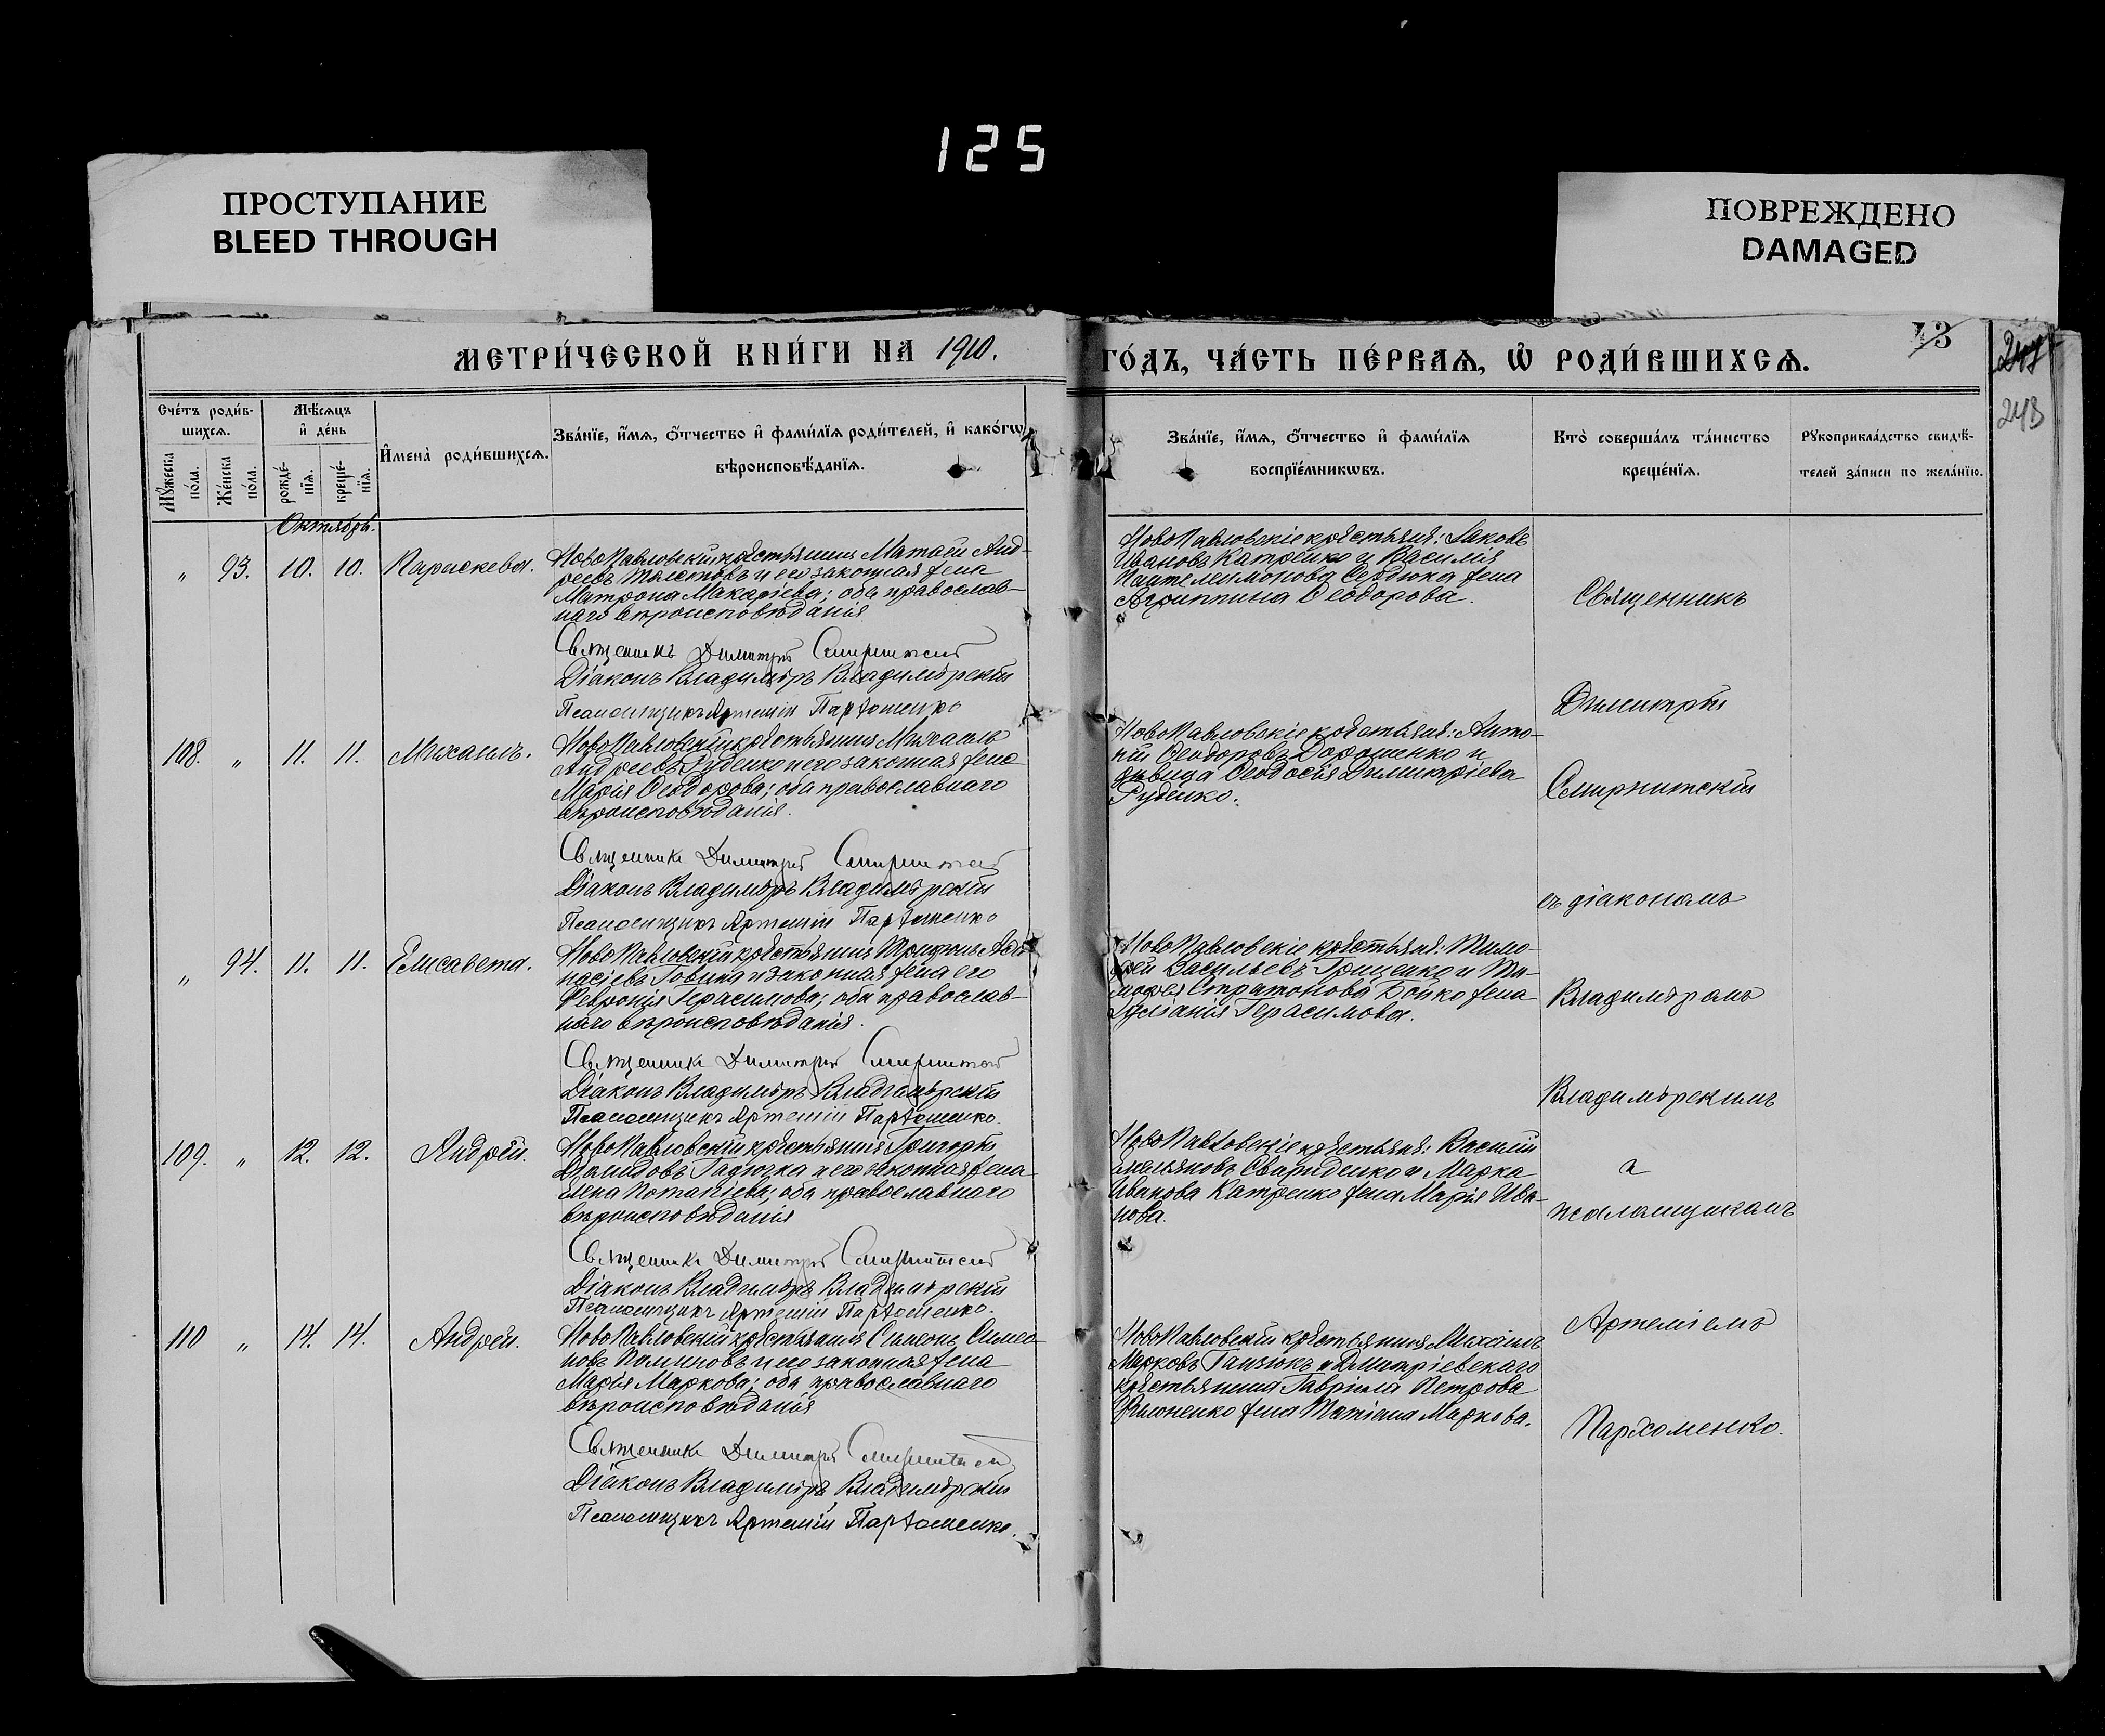 125
ПРОСТУПАНИЕ
BLEED THROUGH
ПОВРЕЖДЕНО
DAMAGED
МЕТРИ́ЧЕСКОЙ КНИ́ГИ НА 1910.
ГО́ДЪ, ЧА́СТЬ ПЕ́РВАѦ, Ѡ҆ РОДИ́ВШИХСѦ.
43
243
Сче́тъ роди́в-
шихсѧ.
Мѣ́сѧцъ
и҆ де́нь
Мꙋ́жеска по́ла.
Же́нска по́ла.
рожде́-нїѧ.
креще́-нїѧ.
И҆мена̀ роди́вшихсѧ.
Зва́нїе, и҆́мѧ, ѻ҆́тчество и҆ фами́лїѧ роди́телей, и҆ како́гѡ
вѣроисповѣ́данїѧ.
Зва́нїе, и҆́мѧ, ѻ҆́тчество и҆ фами́лїѧ
воспрїе́мникѡвъ.
Кто̀ соверша́лъ та́инство
креще́нїѧ.
Рꙋкоприкла́дство свидѣ́-
телей за́писи по жела́нїю.
Октябрь.
„ 93. 10. 10. Параскева.
НовоПавловскій крестьянинъ Матѳей Анд-
реевъ Толстовъ и его законная жена
Матрона Макаріева; оба православ-
наго вѣроисповѣданія
Священникъ Димитрій Смирнитскій
Діаконъ Владиміръ Владимірскій
Псаломщикъ Артемій Пархоменко
НовоПавловскіе крестьяне: Іаковъ
Ивановъ Катренко и Василія
Пантелеимонова Сердюка жена
Агриппина Ѳеодорова.
108. „ 11. 11. Михаилъ.
НовоПавловскій крестьянинъ Михаилъ
Андреевъ Руденко и его законная жена
Марія Ѳеодорова; оба православнаго
вѣроисповѣданія.
Священникъ Димитрій Смирнитскій
Діаконъ Владиміръ Владимірскій
Псаломщикъ Артемій Пархоменко
НовоПавловскіе крестьяне: Анто-
ній Ѳеодоровъ Дорошенко и
дѣвица Ѳеодосія Димитріева
Руденко.
„ 94. 11. 11. Елисавета.
НовоПавловскій крестьянинъ Трифонъ Аѳа-
насіевъ и законная жена его
Февронія Герасимова; оба православ-
наго вѣроисповѣданія.
Священникъ Димитрій Смирнитскій
Діаконъ Владиміръ Владимірскій
Псаломщикъ Артемій Пархоменко.
НовоПавловскіе крестьяне: Тимо-
ѳей Васильевъ Грищенко и Ти-
моѳея Стратонова Бойко жена
Іуліанія Герасимова.
109. „ 12. 12. Андрей.
НовоПавловскій крестьянинъ Григорій
Діомидовъ Гадючка и его законная жена
Елена Потапіева; оба православнаго
вѣроисповѣданія
Священникъ Димитрій Смирнитскій
Діаконъ Владиміръ Владимірскій
Псаломщикъ Артемій Пархоменко.
НовоПавловскіе крестьяне: Василій
Емельяновъ Свириденко и Марка
Иванова Катренко жена Марія Ива-
нова.
110 „ 14. 14. Андрей.
НовоПавловскій крестьянинъ Симеонъ Симео-
новъ и его законная жена
Марія Маркова; оба православнаго
вѣроисповѣданія
Священникъ Димитрій Смирнитскій
Діаконъ Владиміръ Владимірскій
Псаломщикъ Артемій Пархоменко.
НовоПавловскій крестьянинъ Михаилъ
Марковъ и Димитріевскаго
крестьянина Гавріила Петрова
жена Татіана Маркова.
Священникъ
Димитрій
Смирнитскій
съ діакономъ
Владиміромъ
Владимірскимъ
и
псаломщикомъ
Артеміемъ
Пархоменко.